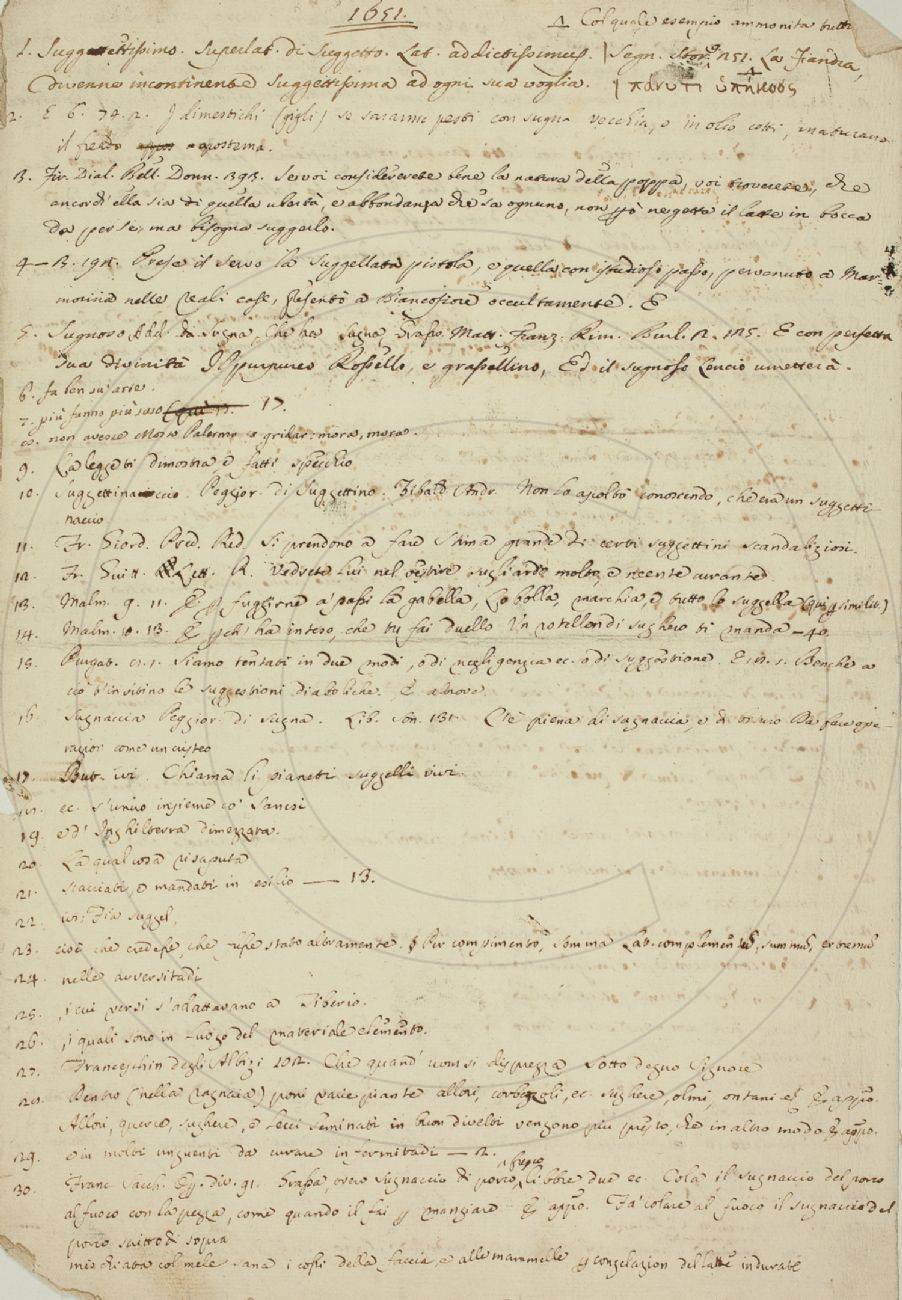 1651.
⁂ Col quale esempio ammonita tutta
1. Suggettissimo. Superlat. di Suggetto. Lat. addictissimus. Segn. Stor. 251. La Fiandra,
divenne incontinente suggettissima ad ogni sua voglia. πάνυ τι ὑπήκοος
2. E 6. 74. 2. I dimestichi (gigli) se saranno pesti con sugna vecchia, o in olio cotti, maturano
il freddo apostema.
3. Fir. Dial. Bell. Donn. 393. Se voi considererete bene la natura della poppa, voi troverete, che
ancorch' ella sia di quella ubertà, e abbondanza che sa ognuno, non però ne getta il latte in bocca
da per se, ma bisogna suggerlo.
4 — B. 191. Prese il servo la suggellata pistola, e quella con istudiosi passi, pervenuto a Mar-
morina nelle reali case, presentò a Biancofiore occultamente. E
5. Sugnoso. Add. da Sugna, Che ha sugna, Grasso. Matt. Franz. Rim. Burl. 2. 125. E con perfetta
sua divinità Il purpureo Rossello, e grassellino, Ed il sugnoso Lencio umetterà.
6. fa len su' arte.
7. più fanno più suso 17.
8. non avesse Mosso Palermo a gridar: mora, mora.
9. La legge ti dimostra, e fatti specchio
10. Suggettinaccio. Peggior. di Suggettino. Tibald. Andr. Non lo ascoltò conoscendo, che era un suggetti-
naccio
11. Fr. Giord. Pred. Red. Si prendono a fare stima grande di certi suggettini scandalizzosi.
12. Fr. Guitt. Lett. R. Vedrete lui nel vestire sugliardo molto, e neente curante
13. Malm. 9. 11. E per fuggirne a' passi la gabella, Lo bolla, marchia, e tutto lo suggella (Qui per similit.)
14. Malm. 10. 13. E perch' ha inteso, che tu fai duello Un rotellon di sughero ti manda — 40.
15. Purgat. 11. 1. Siamo tentati in due modi, o di negligenzia ec. o di suggestione. E 11. 1. Benche a
ciò s' insitino le suggestioni diaboliche. E altrove
16. Sugnaccia Peggior. di Sugna. Lib. Son. 131. C'è piena di sugnaccia, e di Da fare ope-
razioni come un cristeo
17. But. ivi. Chiama li pianeti suggelli vivi.
18. ec. s' unio insieme co' Sanesi
19. e d' Inghilterra dimezzata.
20. La qual cosa risaputa
21. scacciati, e mandati in esilio — 13.
22. ivi: Fia suggel.
23. cioè che credesse, che fusse stato altramente. Per compimento, Somma Lat. complementum, summum, extremum
24. nelle avversitadi
25. , i cui versi s' adattavano a Tiberio.
26. , i quali sono in luogo del materiale elemento.
27. Franceschin degli Albizi 102. Che quand' uom si disprezza Sotto degno Signore
28. Dentro (nella ragnaia) poni varie piante allori, corbezzoli, ec. sughere, olmi, ontani ec. E appo.
Allori, querce, sughere, e lecci seminati in buon divelti vengono più presto, che in altro modo E appo.
29. e in molti unguenti da curare infermitadi — 2.
30. Franc. Sacch. Op. div. 91. Grassa, ovvero sugnaccio di porco fresco, libbre due ec. Cola il sugnaccio del porco
al fuoco con la pezza, come quando il fai per mangiare E appo. Fa' colare al fuoco il sugnaccio del
porco scritto di sopra
mischiata col mele sana i cossi della faccia, e alle mammelle per congelazion del latte indurate